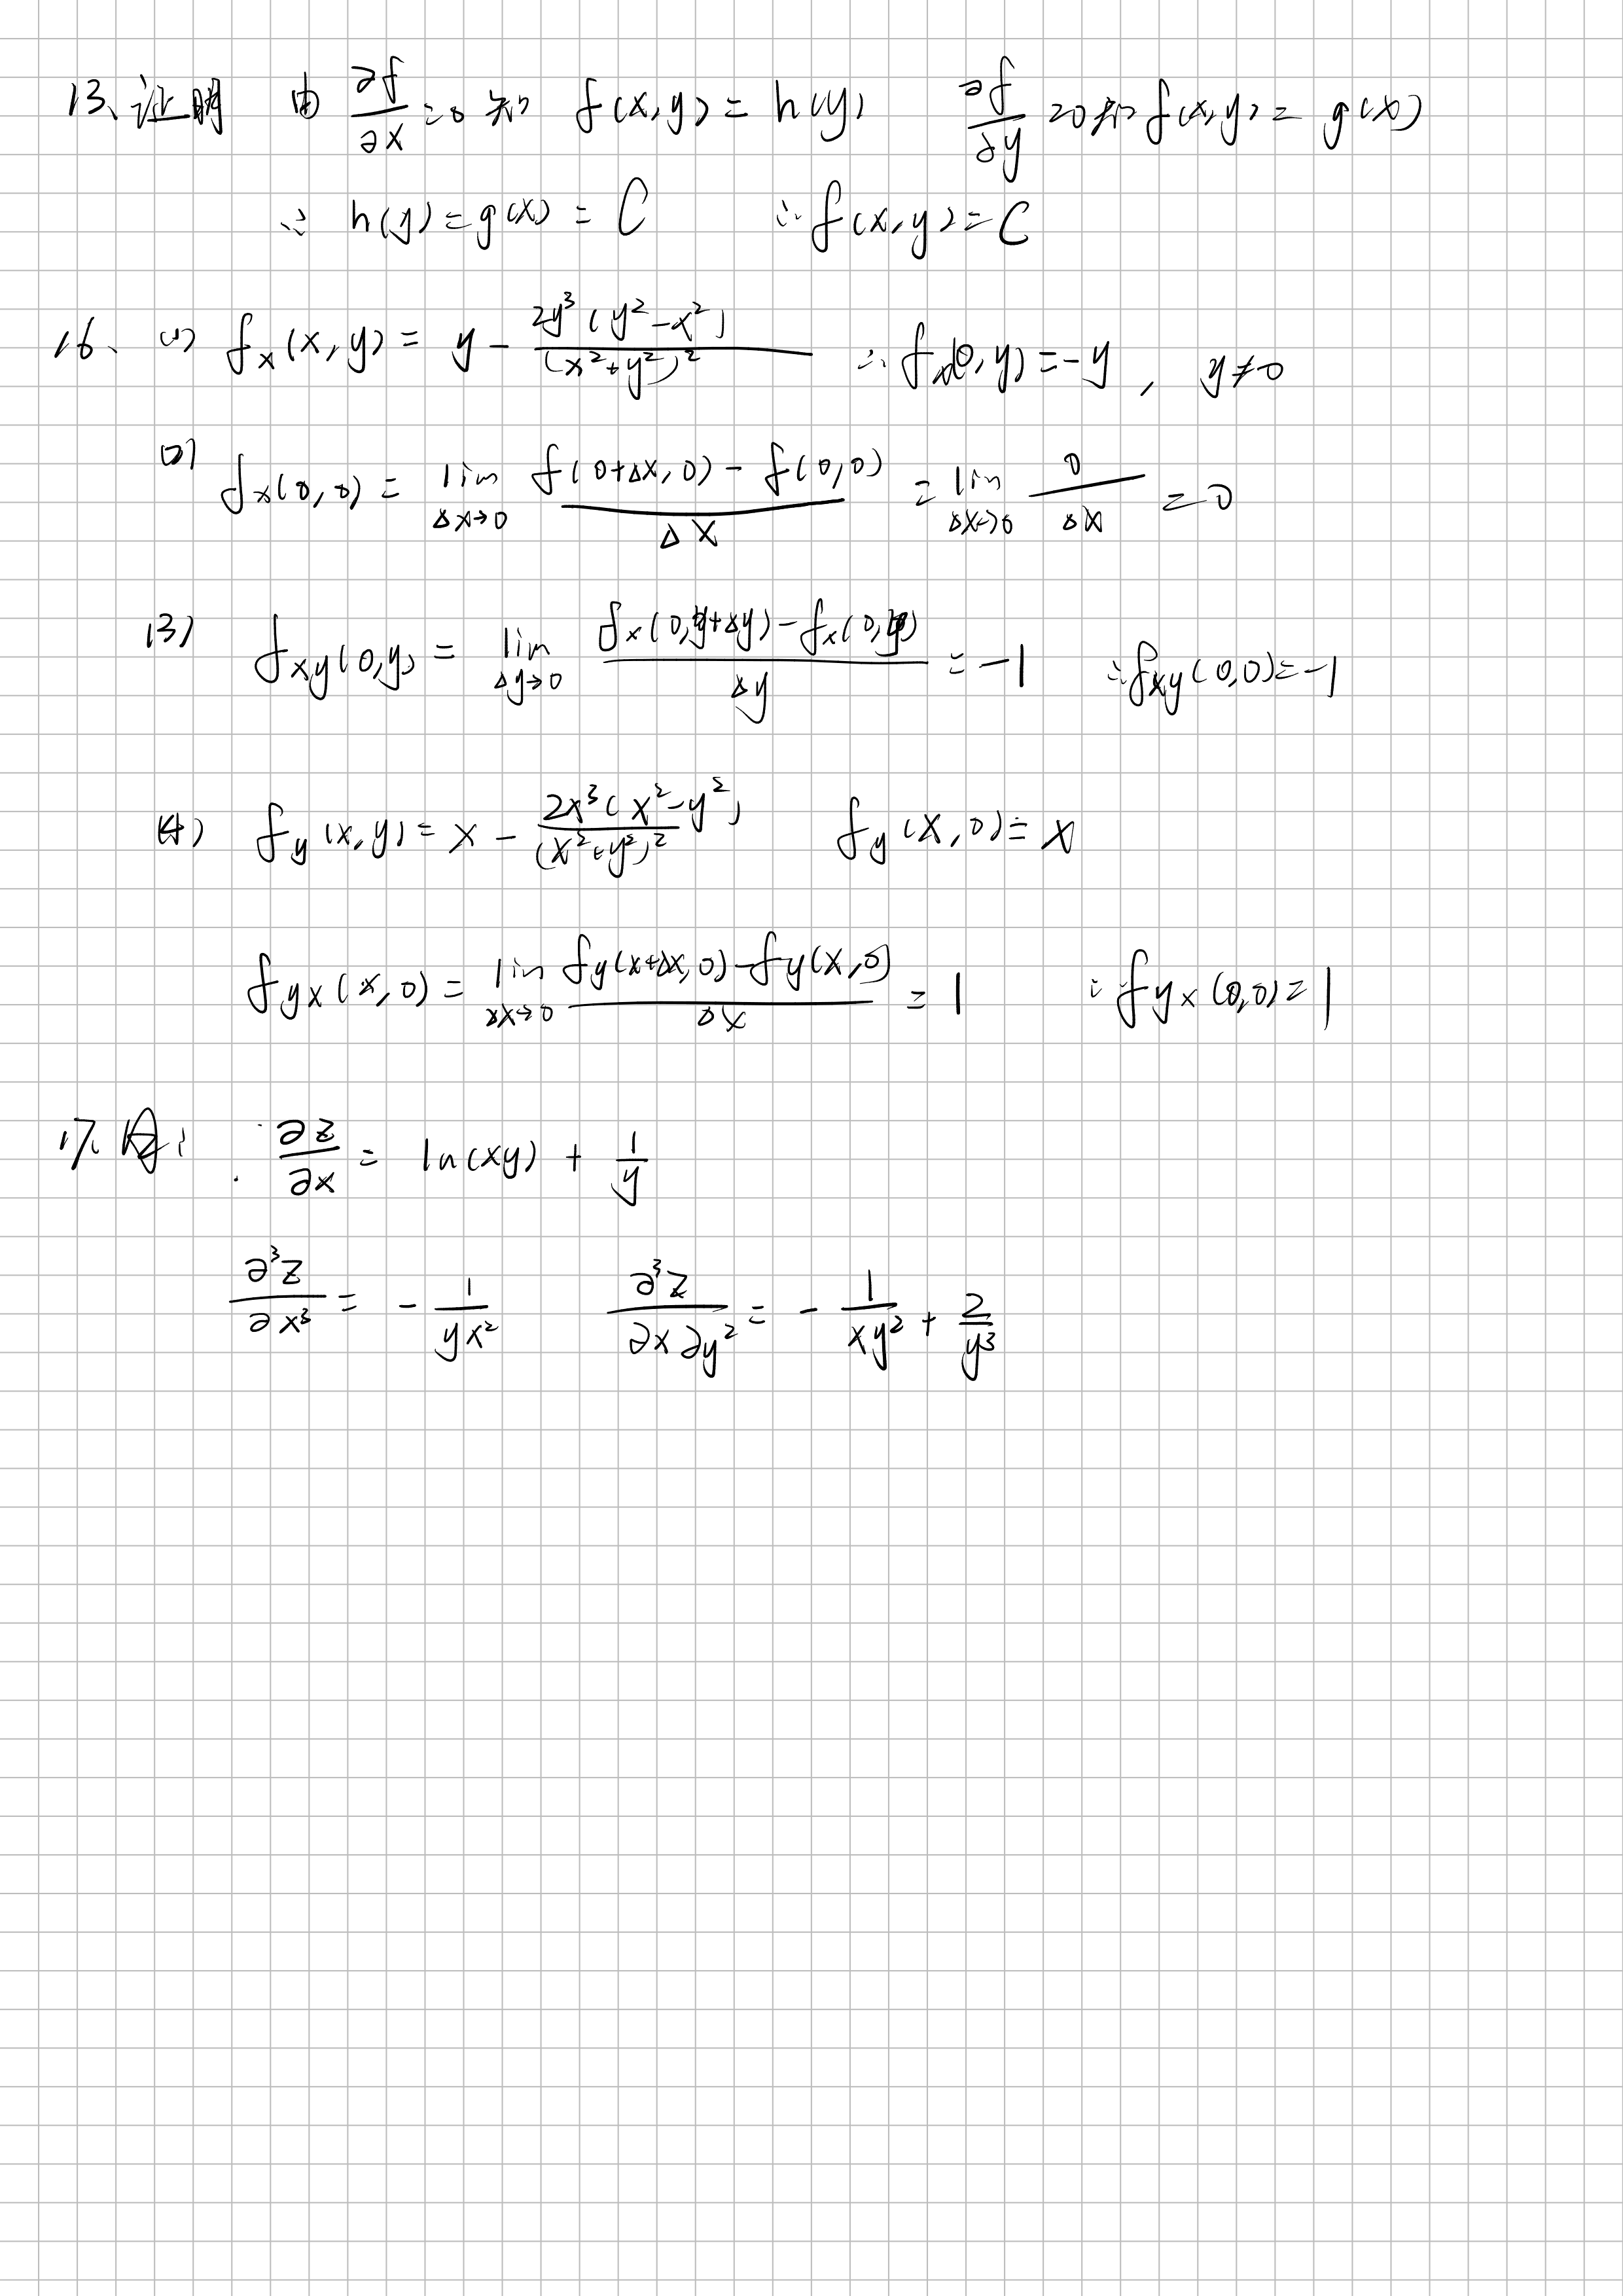 13、证明 由 ∂f/∂x = 0 知 f(x,y) = h(y) ∂f/∂y = 0 知 f(x,y) = g(x)
∴ h(y) = g(x) = C ∴ f(x,y) = C
16、(1) f_x(x,y) = y - 2y³(y²-x²)/(x²+y²)² ∴ f_x(0,y) = -y, y≠0
(2) f_x(0,0) = lim_{Δx→0} (f(0+Δx,0) - f(0,0))/Δx = lim_{Δx→0} 0/Δx = 0
(3) f_xy(0,y) = lim_{Δy→0} (f_x(0,y+Δy) - f_x(0,y))/Δy = -1 ∴ f_xy(0,0) = -1
(4) f_y(x,y) = x - 2x³(x²-y²)/(x²+y²)² f_y(x,0) = x
f_yx(x,0) = lim_{Δx→0} (f_y(x+Δx,0) - f_y(x,0))/Δx = 1 ∴ f_yx(0,0) = 1
17. ∂z/∂x = ln(xy) + 1/y
∂³z/∂x³ = - 1/(yx²) ∂³z/(∂x∂y²) = - 1/(xy²) + 2/y³